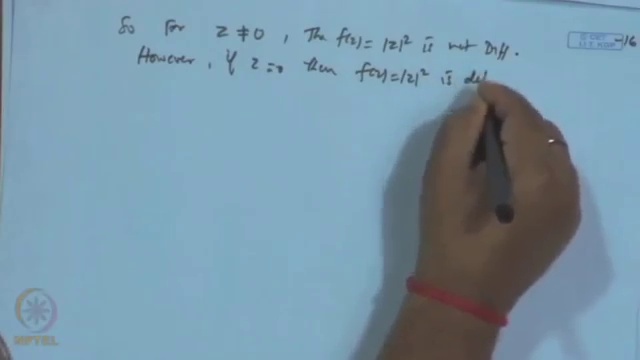 So For z ≠ 0, The f(z) = |z|² is not Diff.
However, if z = 0 then f(z) = |z|² is
NPTEL